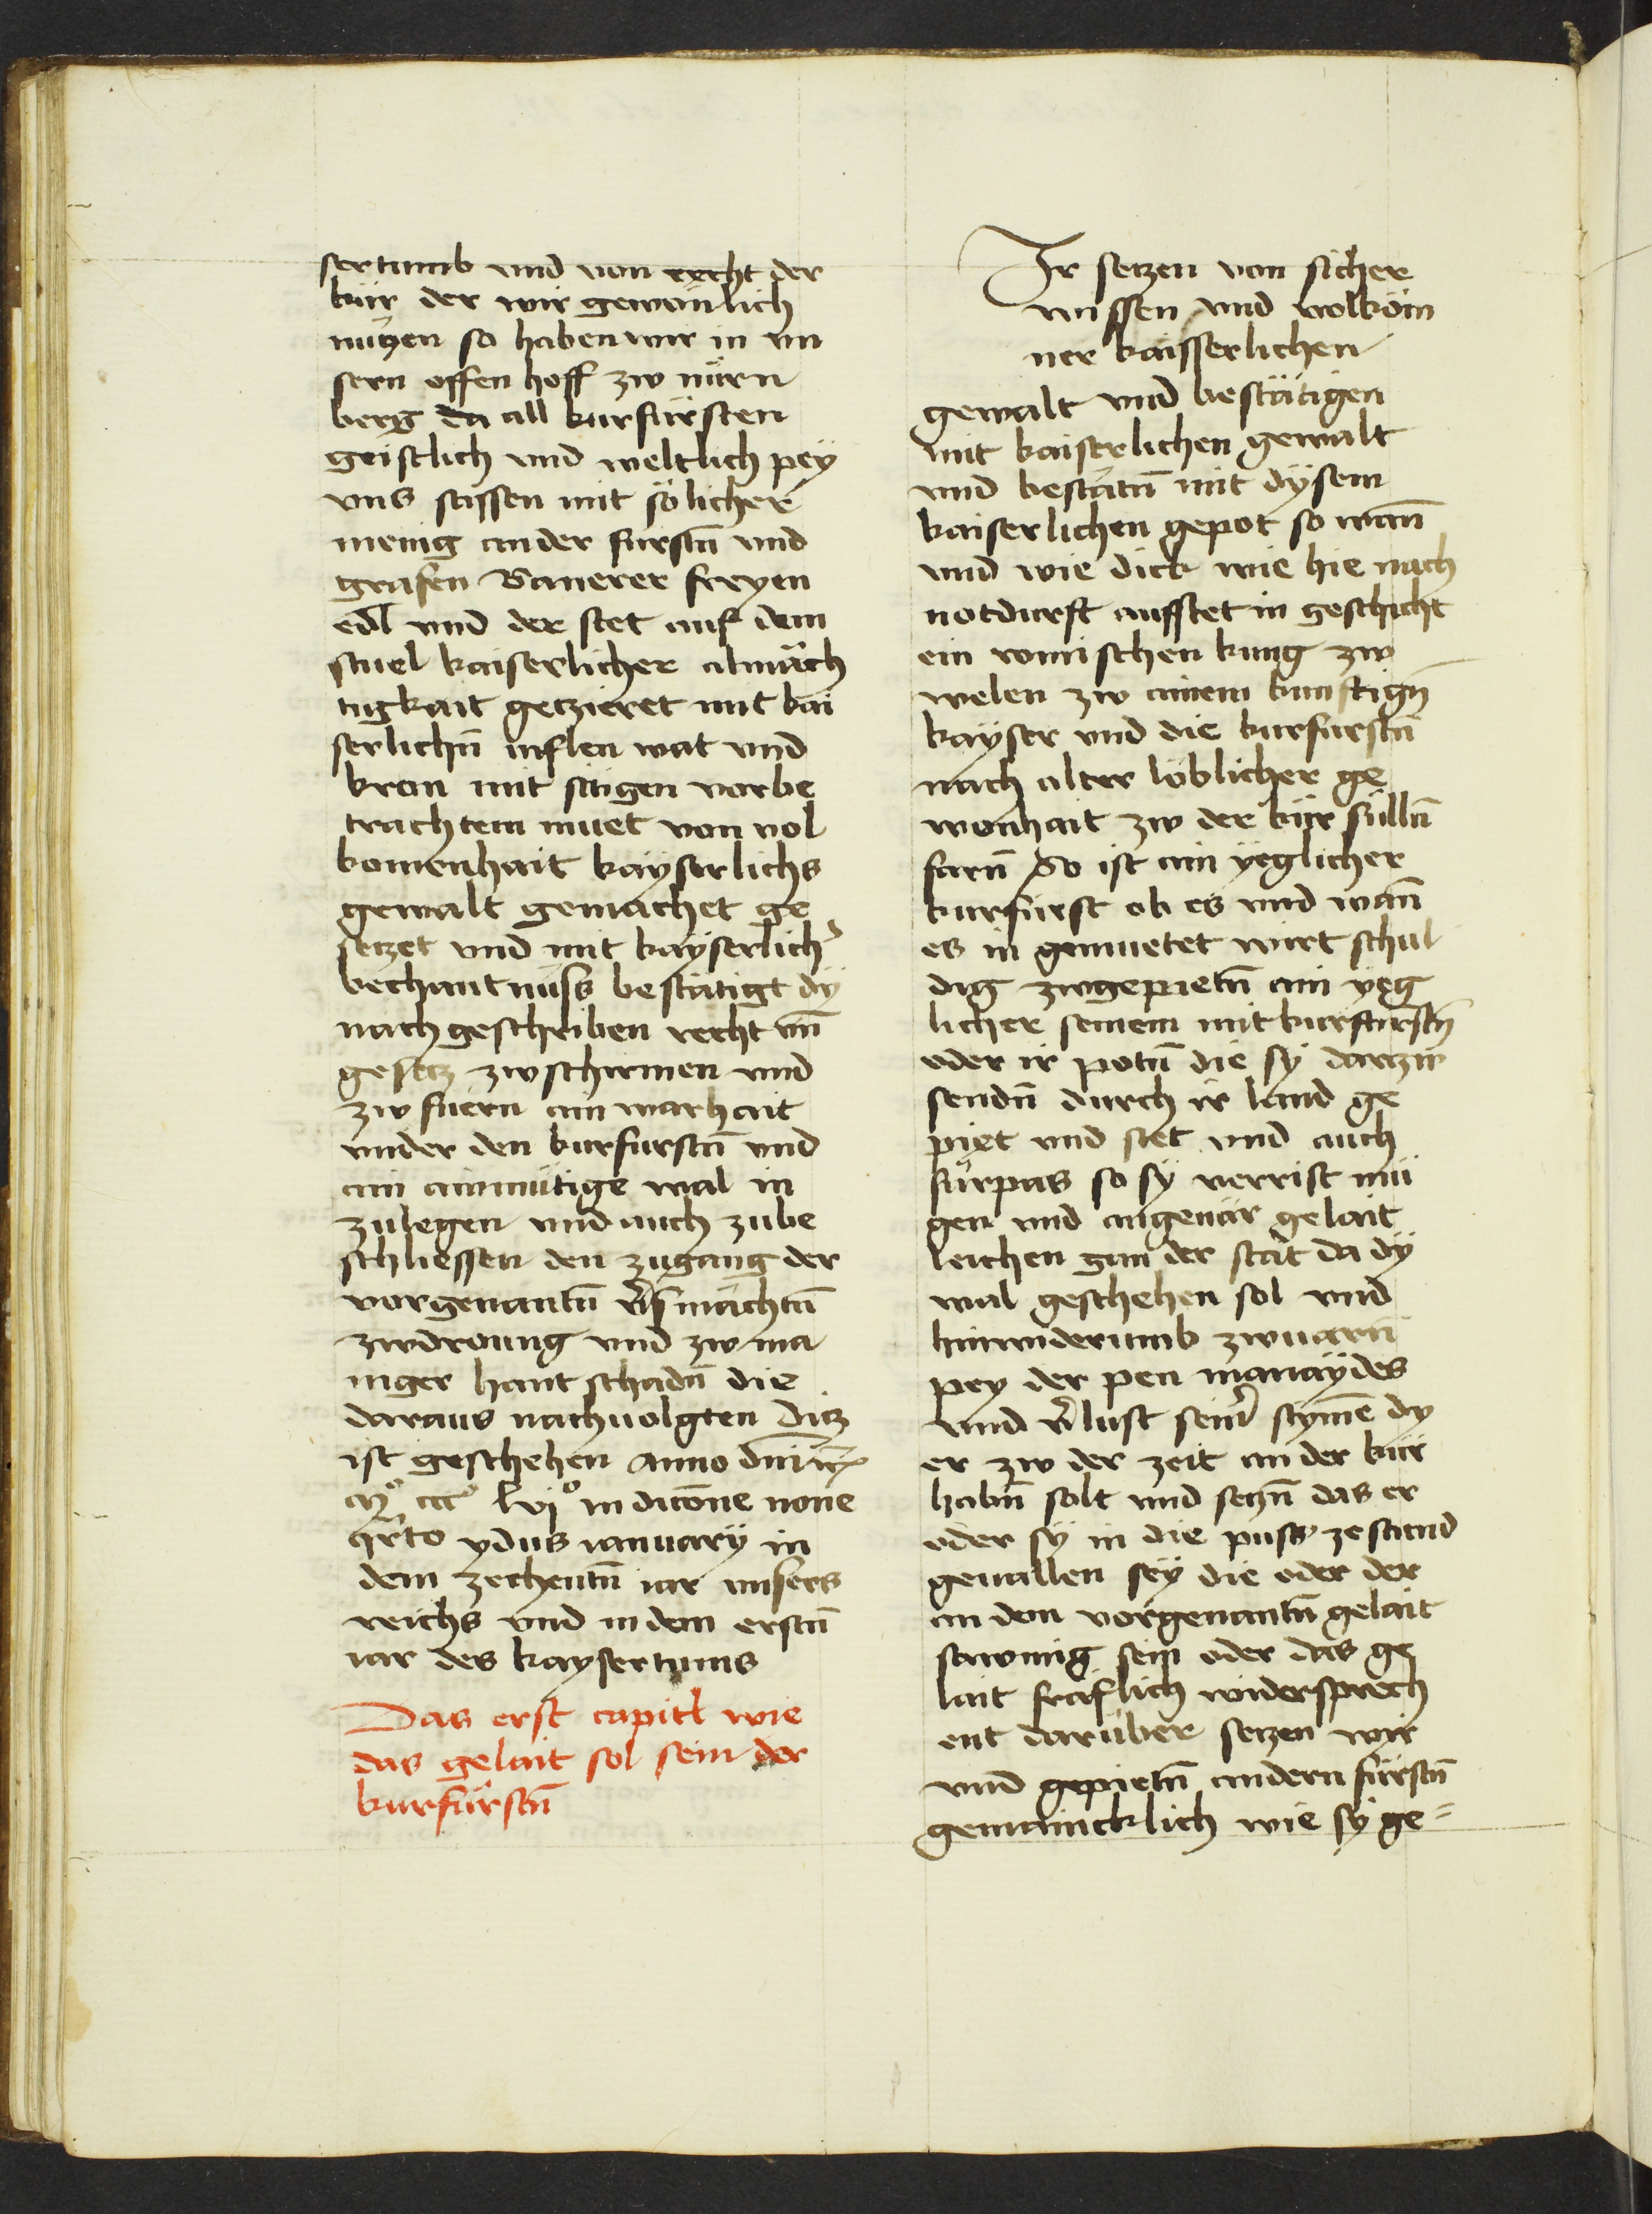 sertumb vnd von recht der
kür der wir gewönlich
nützen so haben wir in vn
sern offen hoff zw nürn
berg da all kurfürsten
geistlich vnd weltlich pey
vns sassen mit sölicher
menig ander fürstn̄ vnd
grafen Banerer freyen
edl vnd der stet auf dem
stuel kaiserlicher almäch
tigkait getzieret mit kai
serlichn̄ inflen wat vnd
kron mit sitigen vorbe
trachtem muet von vol
komenhait kayserlichs
gewalt gemachet ge
setzet vnd mit kayserlich̓
bechantnüss bestätigt dÿ
nach geschriben recht vn̄
gesetz zwschirmen vnd
zw fuern ain warhait
vnder den kurfurstn̄ vnd
ain ainmütige wal in
zulegen vnd auch zube
schliessen den zugang der
vorgenantn̄ v̓smächtn̄
zwdroung vnd zw ma
niger hant schadn̄ die
daraus nachuolgten Ditz
ist geschehen anno dnī
mº cccº lvjº indicōne none
qrto ydus ianuarÿ in
dem zechentn̄ iar vnsers
reichs vnd in dem erstn̄
iar des kaysertums
Das erst capitl wie
das gelait sol sein der
kurfürstn̄
Ir setzen von sicher
wissen vnd volköm
ner kaisserlichen
gewalt vnd bestätigen
mit kaiserlichen gewalt
vnd bestätn̄ mit dÿsem
kaiserlichen gepot so wan̄
vnd wie dick wie hie nach
notdurft aufstet in geschicht
ein romischen kung zw
welen zw ainem kunftign̄
kaÿser vnd die kurfurstn̄
nach alter löblicher ge
wonhait zw der kür sülln̄
farn̄ So ist ain yeglicher
kurfürst ob es vnd wan̄
es in gemuetet wirt schul
dig zwgepietn̄ ain yeg
licher seinem mitkurfürstn̄
oder ir potn̄ die sÿ darzw
sendn̄ durch ir land ge
piet vnd stet vnd auch
fürpas so sÿ verrist mü
gen vnd angenär gelait
leichen gan der stat da dÿ
wal geschehen sol vnd
hinwiderumb zwuarn̄
pey der pen manaÿdes
vnd v̓lust sein̓ stym̄e dy
er zw der zeit an der kür
habn̄ solt vnd setzn̄ das er
oder sÿ in die puss zestand
geuallen seÿ die oder der
an dem vorgenantn̄ gelait
sawmig sein oder das ge
lait fräflich widersprech
ent darüber setzen wir
vnd gepietn̄ andern fürstn̄
gemaincklich wie sÿ ge=